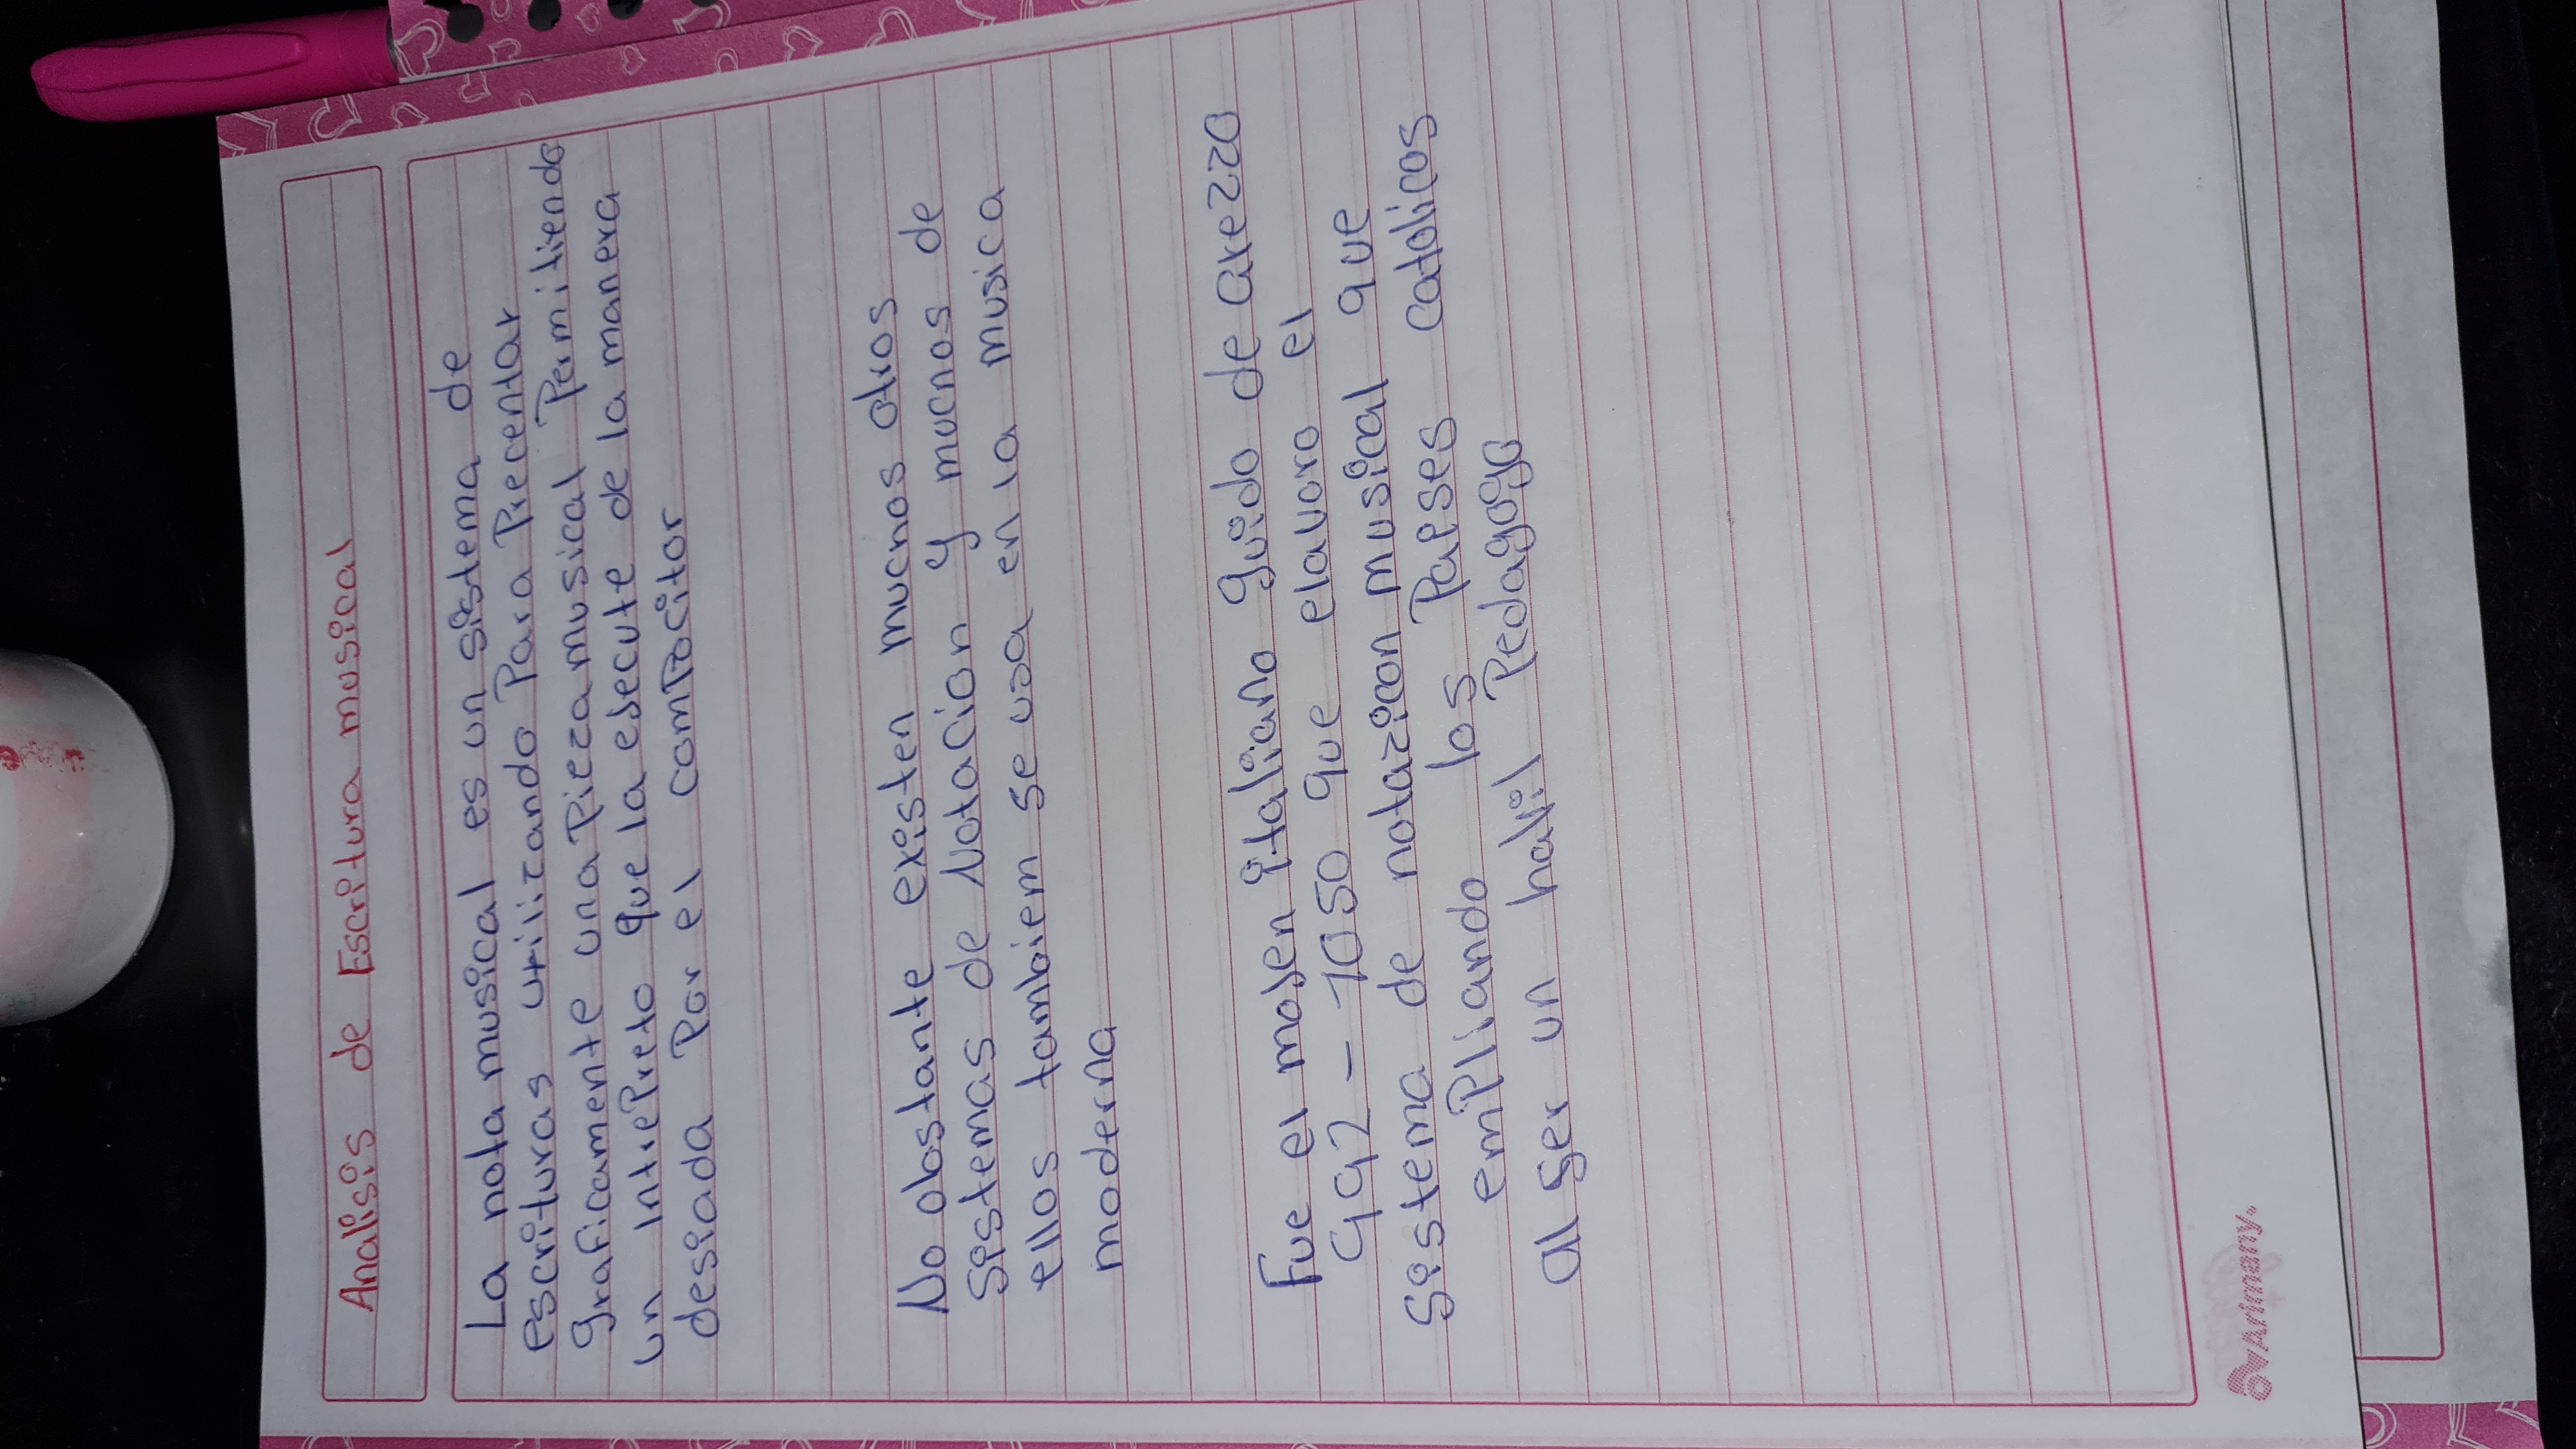 Analisis de Escritura musical
La nota musical es un sistema de
escrituras utilizando Para Precentar
graficamente una Pieza musical Permitiendo
un IntrePreto que la esecute de la manera
desiada Por el comPocitor
No obstante existen muchos otros
sistemas de Notacion y muchos de
ellos tambiem se usa en la musica
moderna
Fue el mosen italiano guido de arezzo
992 - 1050 que elavoro el
sistema de notazicon musical que
emPliando los Paises catolicos
al ser un halil Pedagogo
Arimany.